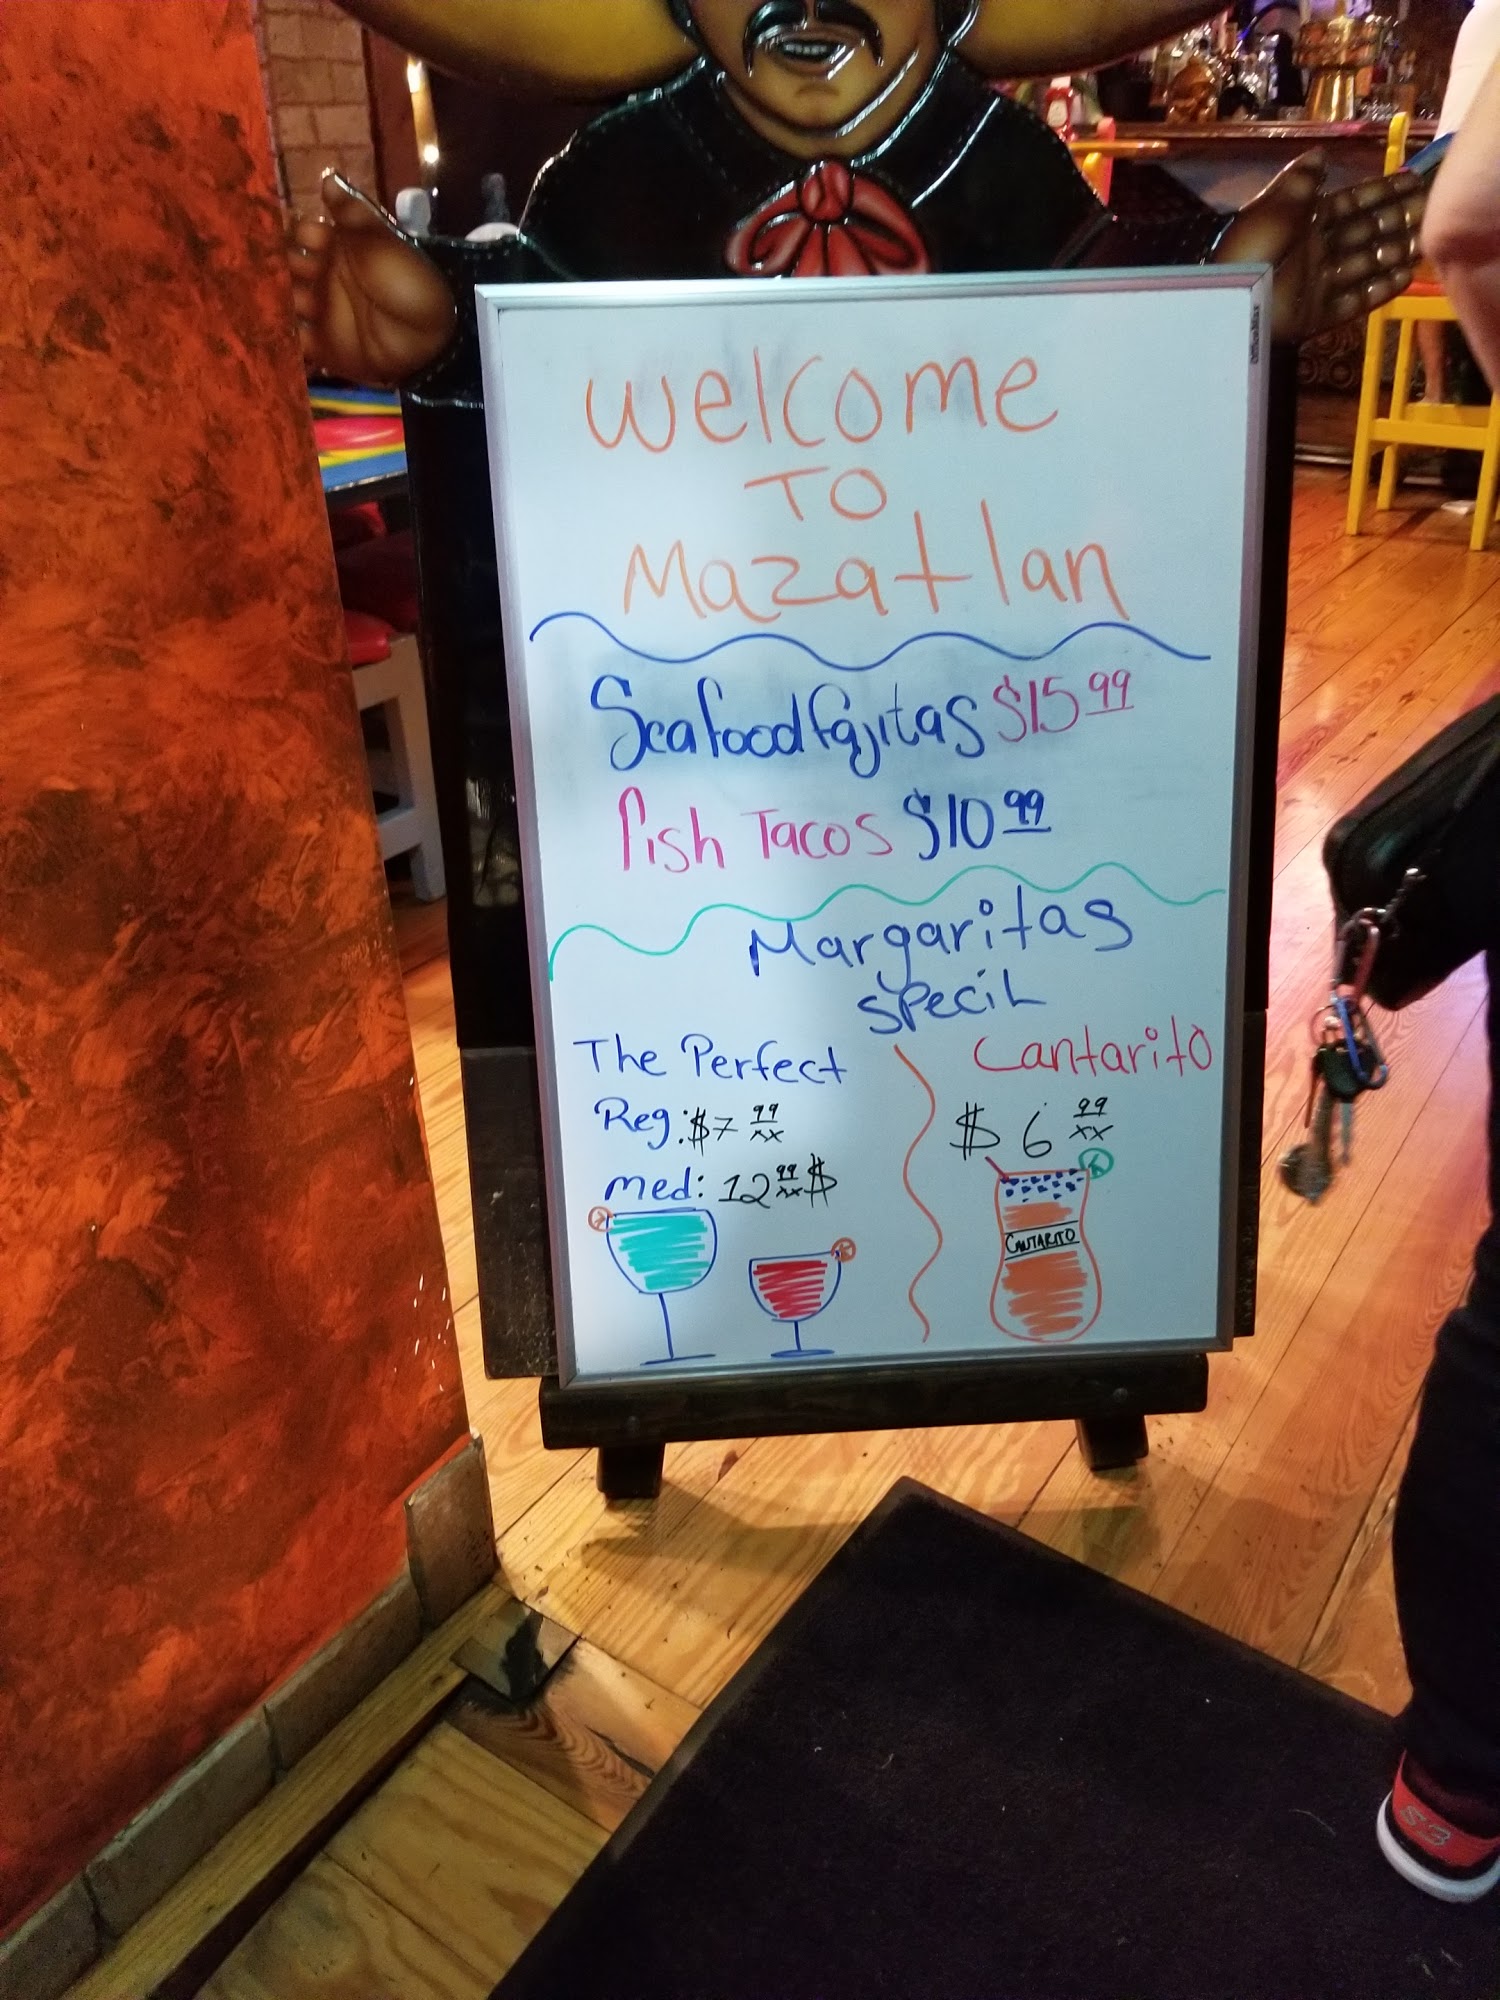 Welcome
TO
Mazatlan
Seafood fajitas $15 99
fish Tacos $10 99
Margaritas
specil
The Perfect
Reg: $7 99/xx
med: 12 99/xx $
Cantarito
$ 6 99/xx
CANTARITO
OfficeMax